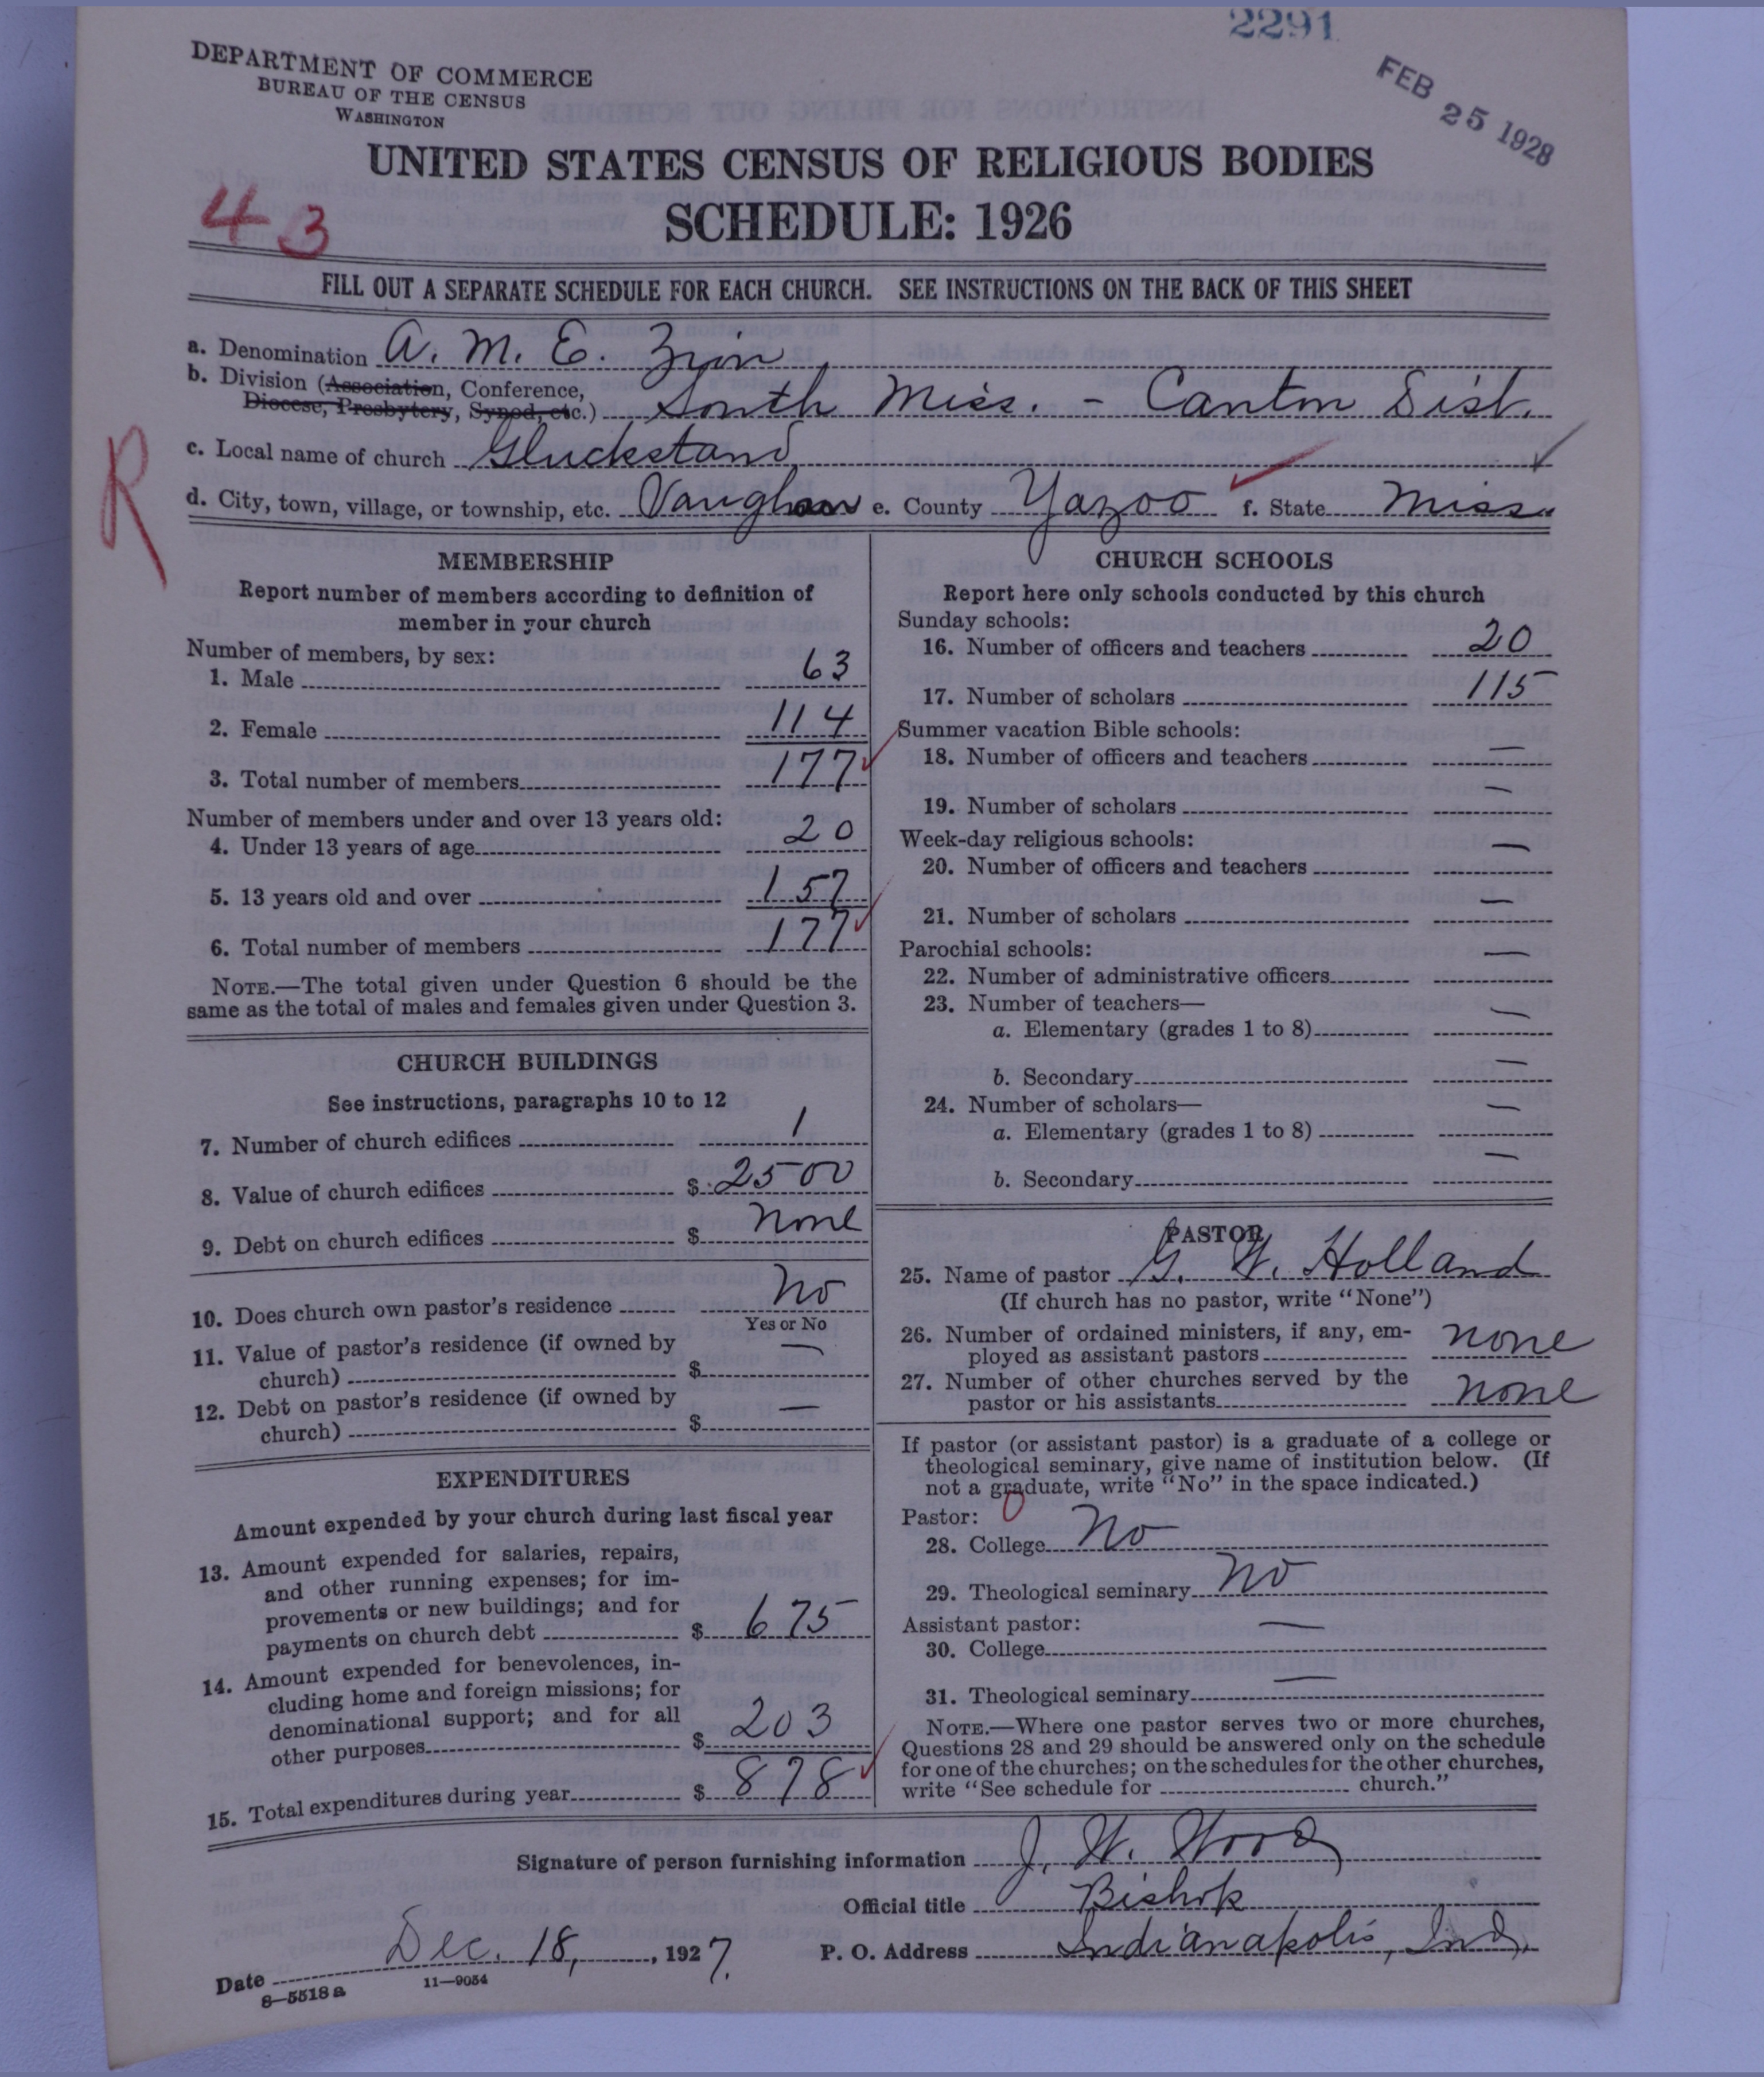 2291
FEB 25 1928
DEPARTMENT OF COMMERCE
BUREAU OF THE CENSUS
WASHINGTON
UNITED STATES CENSUS OF RELIGIOUS BODIES
SCHEDULE: 1926
43
FILL OUT A SEPARATE SCHEDULE FOR EACH CHURCH. SEE INSTRUCTIONS ON THE BACK OF THIS SHEET
a. Denomination A. M. E. Zion
b. Division (Association, Conference,
Diocese, Presbytery, Synod, etc.) South Miss. - Canton Dist.
R
c. Local name of church Gluckstand
d. City, town, village, or township, etc. Vaughan e. County Yazoo f. State Miss.
MEMBERSHIP
Report number of members according to definition of
member in your church
Number of members, by sex:
1. Male 63
2. Female 114
3. Total number of members 177
Number of members under and over 13 years old:
4. Under 13 years of age 20
5. 13 years old and over 157
6. Total number of members 177
NOTE.—The total given under Question 6 should be the
same as the total of males and females given under Question 3.
CHURCH BUILDINGS
See instructions, paragraphs 10 to 12
7. Number of church edifices 1
8. Value of church edifices $ 2500
9. Debt on church edifices $ none
10. Does church own pastor's residence No
Yes or No
11. Value of pastor's residence (if owned by
church) $ —
12. Debt on pastor's residence (if owned by
church) $ —
EXPENDITURES
Amount expended by your church during last fiscal year
13. Amount expended for salaries, repairs,
and other running expenses; for im-
provements or new buildings; and for
payments on church debt $ 675
14. Amount expended for benevolences, in-
cluding home and foreign missions; for
denominational support; and for all
other purposes $ 203
15. Total expenditures during year $ 878
CHURCH SCHOOLS
Report here only schools conducted by this church
Sunday schools:
16. Number of officers and teachers 20
17. Number of scholars 115
Summer vacation Bible schools:
18. Number of officers and teachers —
19. Number of scholars —
Week-day religious schools:
20. Number of officers and teachers —
21. Number of scholars —
Parochial schools:
22. Number of administrative officers —
23. Number of teachers—
a. Elementary (grades 1 to 8) —
b. Secondary —
24. Number of scholars—
a. Elementary (grades 1 to 8) —
b. Secondary —
PASTOR
25. Name of pastor G. W. Holland
(If church has no pastor, write "None")
26. Number of ordained ministers, if any, em-
ployed as assistant pastors none
27. Number of other churches served by the
pastor or his assistants none
If pastor (or assistant pastor) is a graduate of a college or
theological seminary, give name of institution below. (If
not a graduate, write "No" in the space indicated.)
Pastor: 0
28. College No
29. Theological seminary No
Assistant pastor:
30. College —
31. Theological seminary —
NOTE.—Where one pastor serves two or more churches,
Questions 28 and 29 should be answered only on the schedule
for one of the churches; on the schedules for the other churches,
write "See schedule for ---------- church."
Signature of person furnishing information J. W. Wood
Official title Bishop
Date Dec. 18, 1927. P. O. Address Indianapolis, Ind.
8—5518 a 11—9054